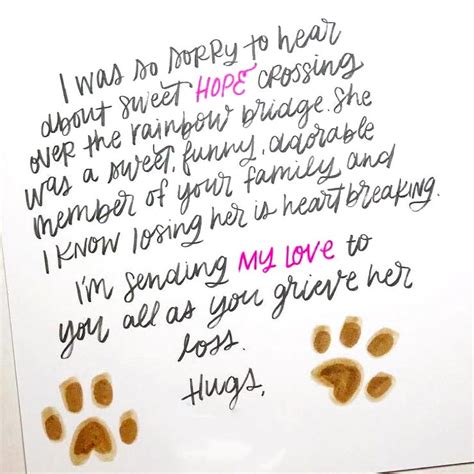 I was so sorry to hear
about sweet HOPE crossing
over the rainbow bridge. She
was a sweet, funny, adorable
member of your family and
I know losing her is heartbreaking.
I'm sending MY LOVE to
you all as you grieve her
loss.
Hugs,